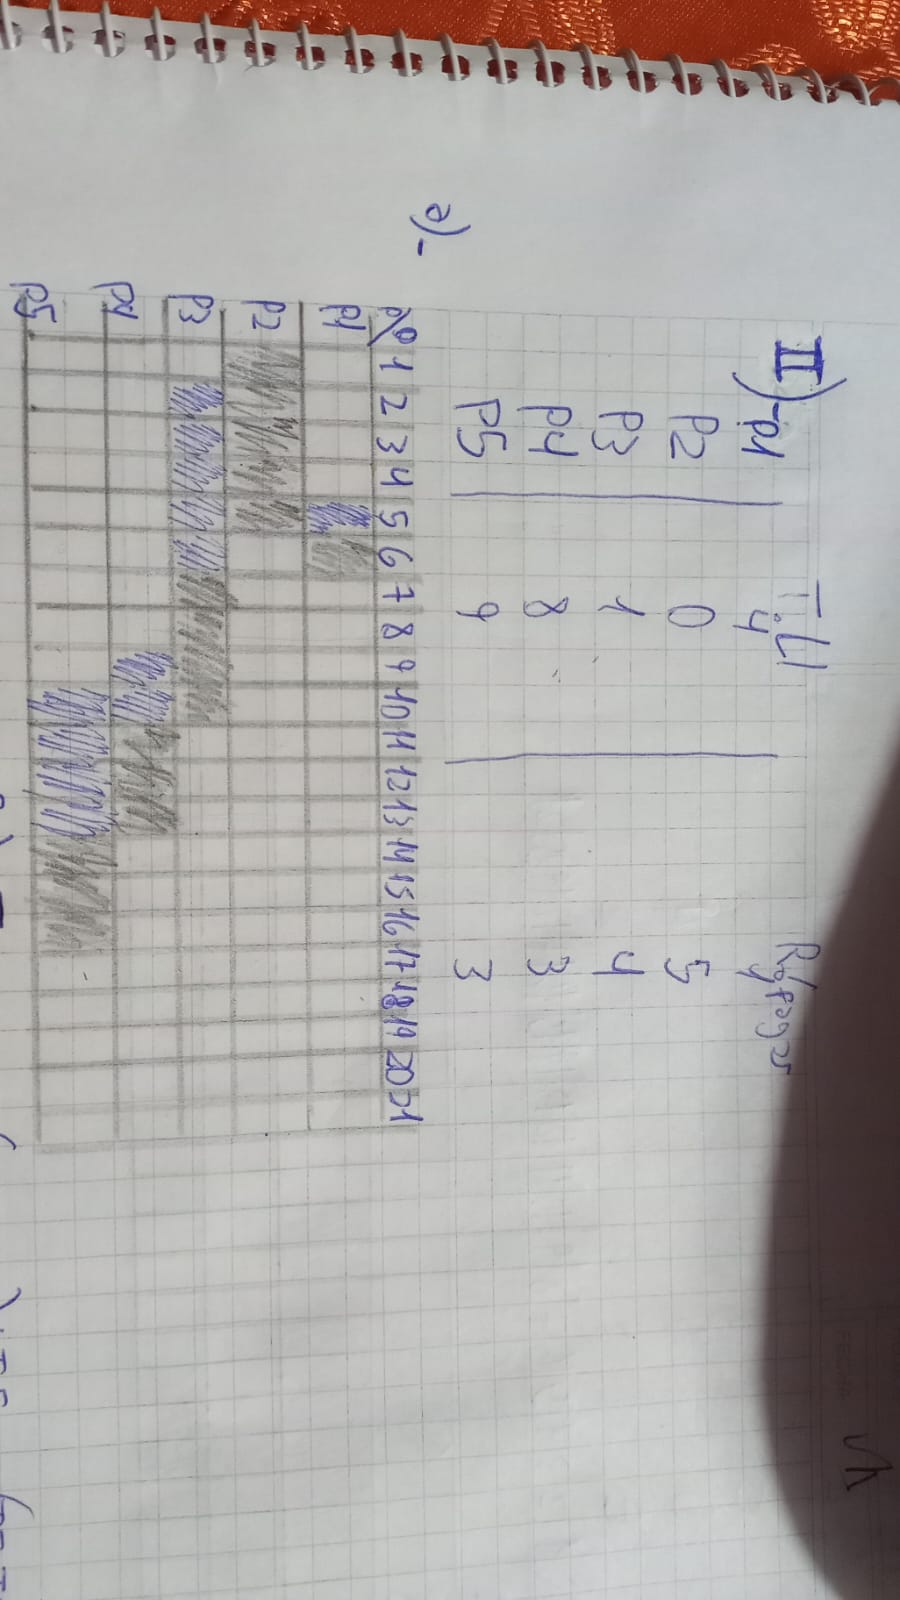 II)- T.Ll Ráfagas
P1 4 1
P2 0 5
P3 1 4
P4 8 3
P5 9 3
a)-
P 0 1 2 3 4 5 6 7 8 9 10 11 12 13 14 15 16 17 18 19 20 21
P1
P2
P3
P4
P5